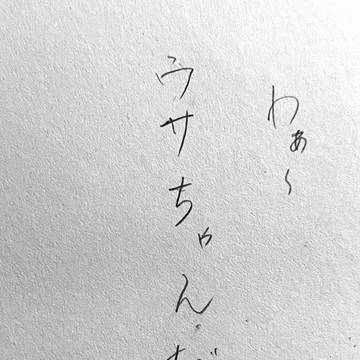 わぁ〜
ウサちゃんだ